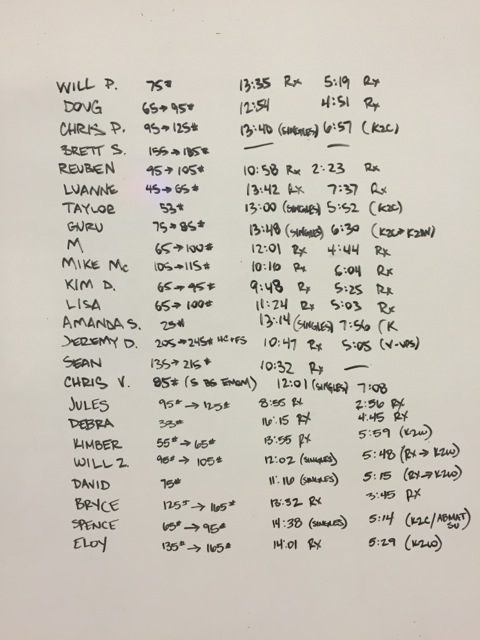 WILL P. 75# 13:35 Rx 5:19 Rx
DOUG 65→95# 12:54 4:51 Rx
CHRIS P. 95→125# 13:40 (SINGLES) 6:57 (K2C)
BRETT S. 155→185# — —
REUBEN 95→105# 10:58 Rx 2:23 Rx
LUANNE 45→65# 13:42 Rx 7:37 Rx
TAYLOR 53# 13:00 (SINGLES) 5:52 (K2C)
GURU 75→85# 13:48 (SINGLES) 6:30
M 65→100# 12:01 Rx 4:44 Rx
MIKE Mc 105→115# 10:16 Rx 6:04 Rx
KIM D. 65→95# 9:48 Rx 5:25 Rx
LISA 65→100# 11:24 Rx 5:03 Rx
AMANDA S. 25# 13:14 (SINGLES) 7:56 (K
JEREMY D. 205→245# HC+FS 10:47 Rx 5:05 (V-UPS)
SEAN 135→215# 10:32 Rx —
CHRIS V. 85# (5 BS EMOM) 12:01 (SINGLES) 7:08
JULES 95#→125# 8:55 RX 2:56 RX
DEBRA 33# 16:15 RX 4:45 RX
KIMBER 55#→65# 13:55 RX 5:59 (K2W)
WILL Z. 95#→105# 12:02 (SINGLES) 5:48 (RX→K2W)
DAVID 75# 11:16 (SINGLES) 5:15 (RX→K2W)
BRYCE 125#→165# 13:32 RX 3:45 RX
SPENCE 65#→95# 14:38 (SINGLES) 5:14 (K2C/ABMAT SU)
ELOY 135#→165# 14:01 RX 5:29 (K2W)